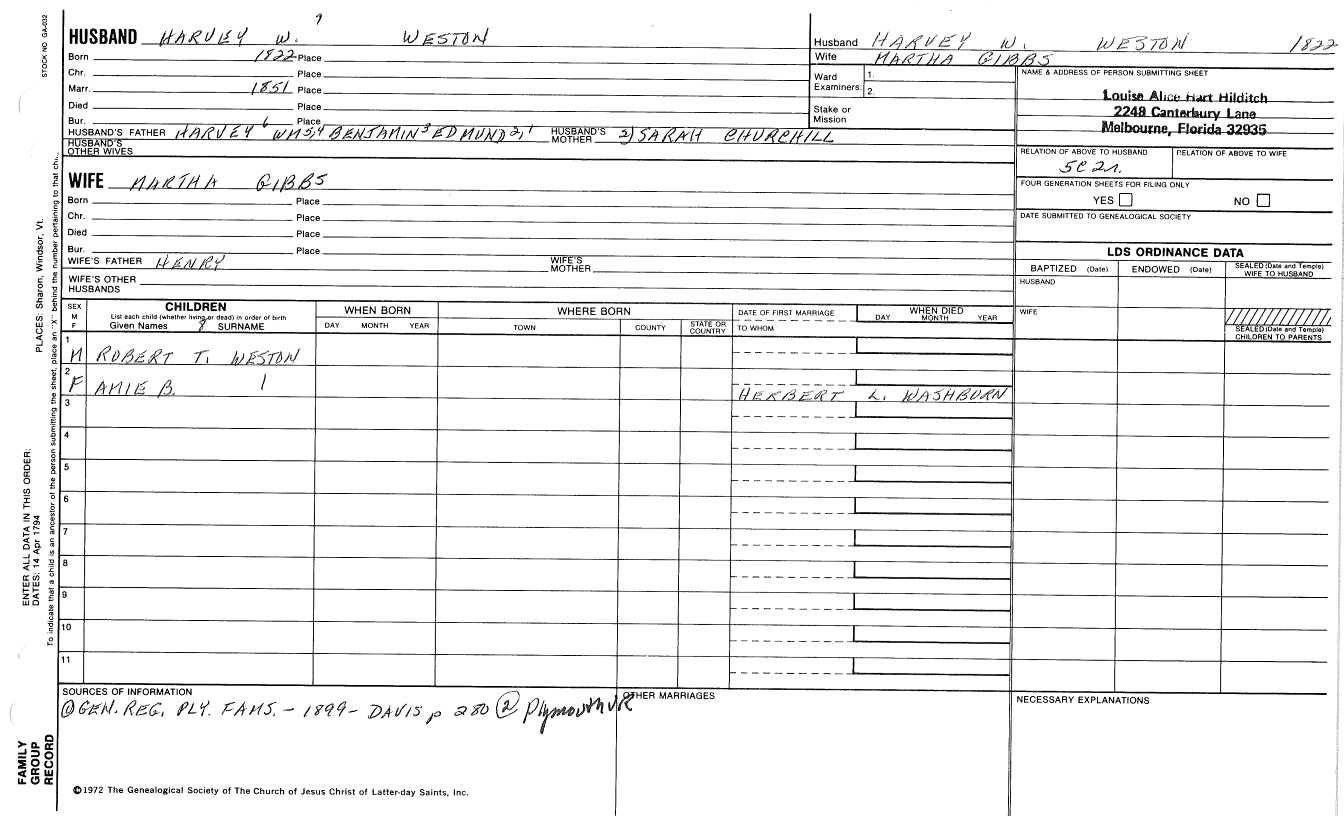 STOCK NO GA-032
7
HUSBAND HARVEY W. WESTON
Born 1822 Place
Chr. Place
Marr. 1851 Place
Died Place
Bur. Place
HUSBAND'S FATHER HARVEY 6 WM 5,4 BENJAMIN 3 EDMUND 2,1 HUSBAND'S MOTHER 2) SARAH CHURCHILL
HUSBAND'S OTHER WIVES
WIFE MARTHA GIBBS
Born Place
Chr. Place
Died Place
Bur. Place
WIFE'S FATHER HENRY WIFE'S MOTHER
WIFE'S OTHER HUSBANDS
Husband HARVEY W. WESTON 1822
Wife MARTHA GIBBS
Ward Examiners: 1.
2.
Stake or Mission
NAME & ADDRESS OF PERSON SUBMITTING SHEET
Louise Alice Hart Hilditch
2248 Canterbury Lane
Melbourne, Florida 32935
RELATION OF ABOVE TO HUSBAND RELATION OF ABOVE TO WIFE
5C 2r.
FOUR GENERATION SHEETS FOR FILING ONLY
YES NO
DATE SUBMITTED TO GENEALOGICAL SOCIETY
LDS ORDINANCE DATA
BAPTIZED (Date) ENDOWED (Date) SEALED (Date and Temple) WIFE TO HUSBAND
HUSBAND
WIFE
SEALED (Date and Temple) CHILDREN TO PARENTS
SEX M F
CHILDREN
List each child (whether living or dead) in order of birth
Given Names 8 SURNAME
WHEN BORN
DAY MONTH YEAR
WHERE BORN
TOWN COUNTY STATE OR COUNTRY
DATE OF FIRST MARRIAGE
TO WHOM
WHEN DIED
DAY MONTH YEAR
1
M ROBERT T. WESTON
2
F AMIE B. HERBERT L. WASHBURN
3
4
5
6
7
8
9
10
11
SOURCES OF INFORMATION
① GEN. REG. PLY. FAMS. - 1899 - DAVIS p 280 ② Plymouth VR
OTHER MARRIAGES
NECESSARY EXPLANATIONS
©1972 The Genealogical Society of The Church of Jesus Christ of Latter-day Saints, Inc.
FAMILY GROUP RECORD
ENTER ALL DATA IN THIS ORDER:
DATES: 14 Apr 1794
PLACES: Sharon, Windsor, Vt.
To indicate that a child is an ancestor of the person submitting the sheet, place an "X" behind the number pertaining to that